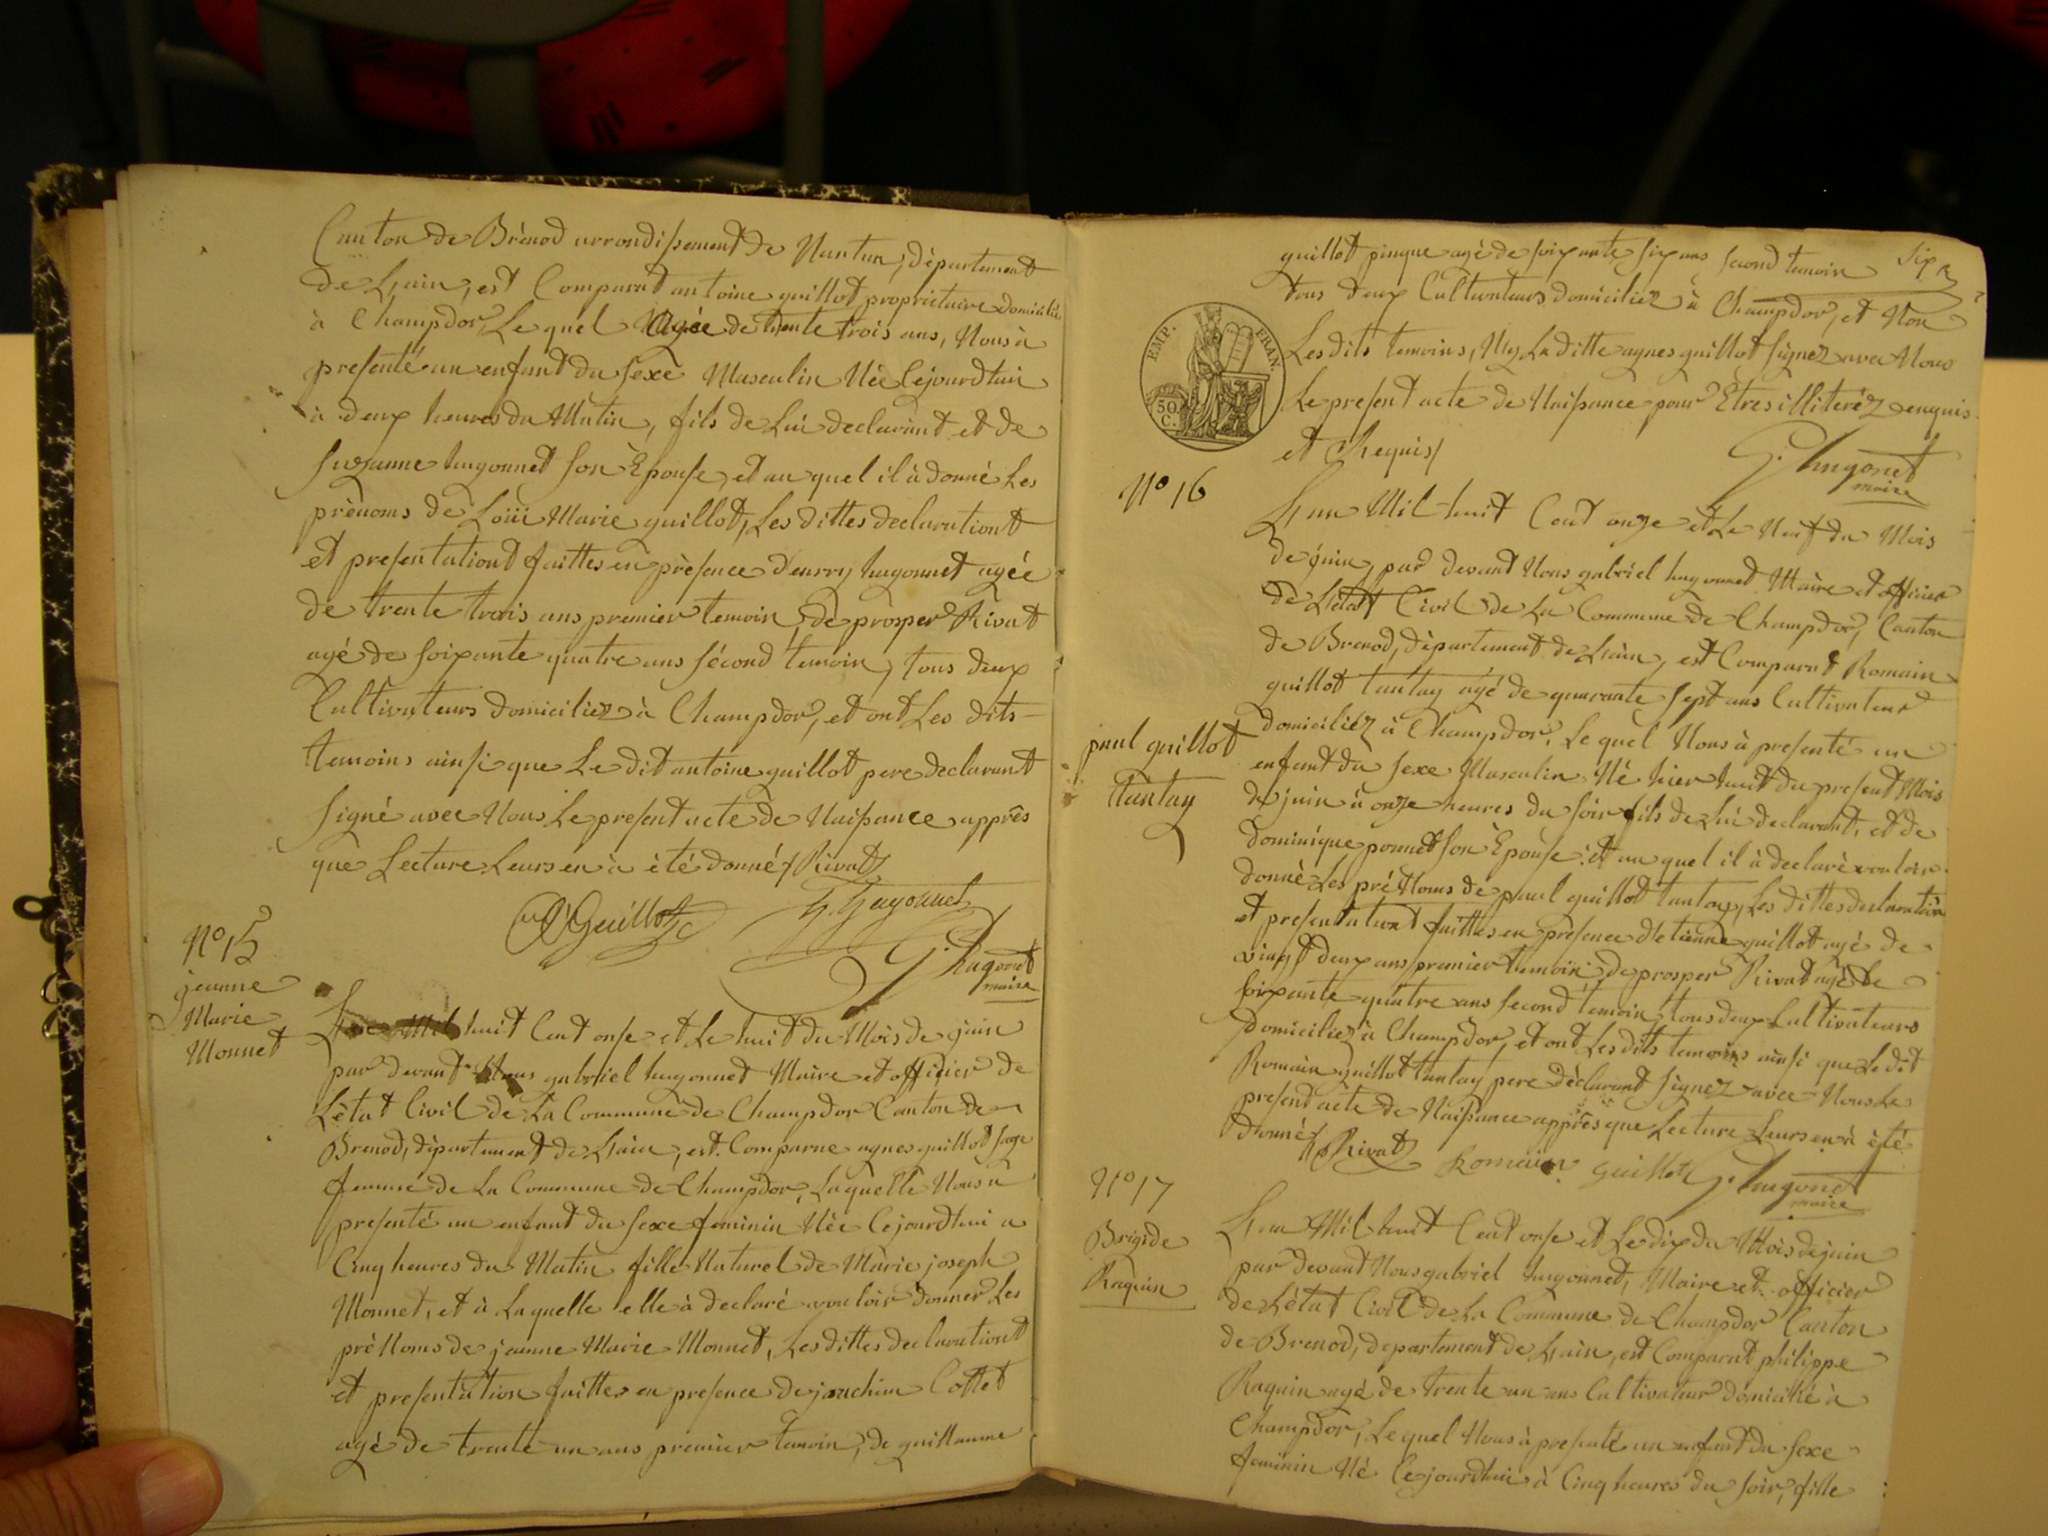 Canton de Brénod arrondissement de Nantua, département
de L'ain, est Comparut antoine guillot propriétaire domicilié
à Champdor, Le quel Agée de trente trois ans, Nous à
presenté un enfant du sexe Masculin Née Cejourdhui
à deux heures du Matin, fils de Lui declarant et de
Suzanne hugonnet son Epouse, et au quel il à donné Les
prénoms de Loüi Marie guillot, Les dittes declarationt
et presentationt faittes en présence d'enrry hugonnet agée
de trente trois ans premier temoin, de prosper Rivat
agé de soixante quatre ans sécond temoin, tous deux
Cultivateurs domiciliez à Champdor, et ont Les dits
temoins ainsi que Le dit antoine guillot pere declarant
signé avec Nous Le present acte de Naissance apprês
que Lecture Leurs en à été donné / Rivat
A Guillot h. hugonnet
G. hugonet
maire
N° 15
jeanne
Marie
Monnet
L'an Mil huit Cent onse et Le huit du Mois de juin
par devant Nous gabriel hugonnet Maire et officier de
L'état Civil de La Commune de Champdor Canton de
Brenod, département de L'ain, est Comparue agnes guillot sage
femme de La Commune de Champdor, Laquelle Nous a
presenté un enfant du sexe feminin Née Cejourdhui a
Cinq heures du Matin fille Naturel de Marie joseph
Monnet, et à Laquelle elle à declaré vouloir donner Les
préNoms de jeanne Marie Monnet, Les dittes declarationt
et presentation faittes en presence de joachim Cottet
agé de trente un ans premier temoin, de guillaume
guillot pinque agé de soixante six ans second temoin
Six
tous deux Cultivateurs domiciliez à Champdor, et Non
Les dits temoins, Ny La ditte agnes guillot signez avec Nous
Le present acte de Naissance pour Etres illiteréz enquis
et Requis /
G. hugonet
maire
EMP. FRAN.
50 C.
N° 16
paul guillot
tantay
L'an Mil huit Cent onze et Le Neuf du Mois
de juin, par devant Nous gabriel hugonnet Maire et officier
de L'état Civil de La Commune de Champdor, Canton
de Brenod, département de L'ain, est Comparut Romain
guillot tantay agé de quarante sept ans Cultivateur
domiciliéz à Champdor, Le quel Nous à presenté un
enfant du sexe Masculin Né hier huit du present Mois
de juin à onze heures du soir fils de Lui declarant, et de
dominique ponnet son Epouse, et au quel il à declaré vouloir
donné Les préNoms de paul guillot tantay, Les dittes declaration
et presentationt faittes en présence d'etienne guillot agé de
vingt deux ans premier temoin, de prosper Rivat agé de
soixante quatre ans second temoin, tous deux Cultivateurs
domiciliez à Champdor, et ont Les dits temoins ainsi que Le dit
Romain guillot tantay pere déclarant signez avec Nous Le
present acte de Naissance apprês que Lecture Leurs en à été
donné / Rivat Romain guillot G. hugonet
maire
N° 17
Brigide
Raquin
L'an Mil huit Cent onse et Le dix du Mois de juin
par devant Nous gabriel hugonnet, Maire et officier
de L'état Civil de La Commune de Champdor Canton
de Brenod, departement de L'ain, est Comparut philippe
Raquin agé de trente un ans Cultivateur domicilié à
Champdor, Le quel Nous à presenté un enfant du sexe
feminin Né Cejourdhui à Cinq heures du soir, fille